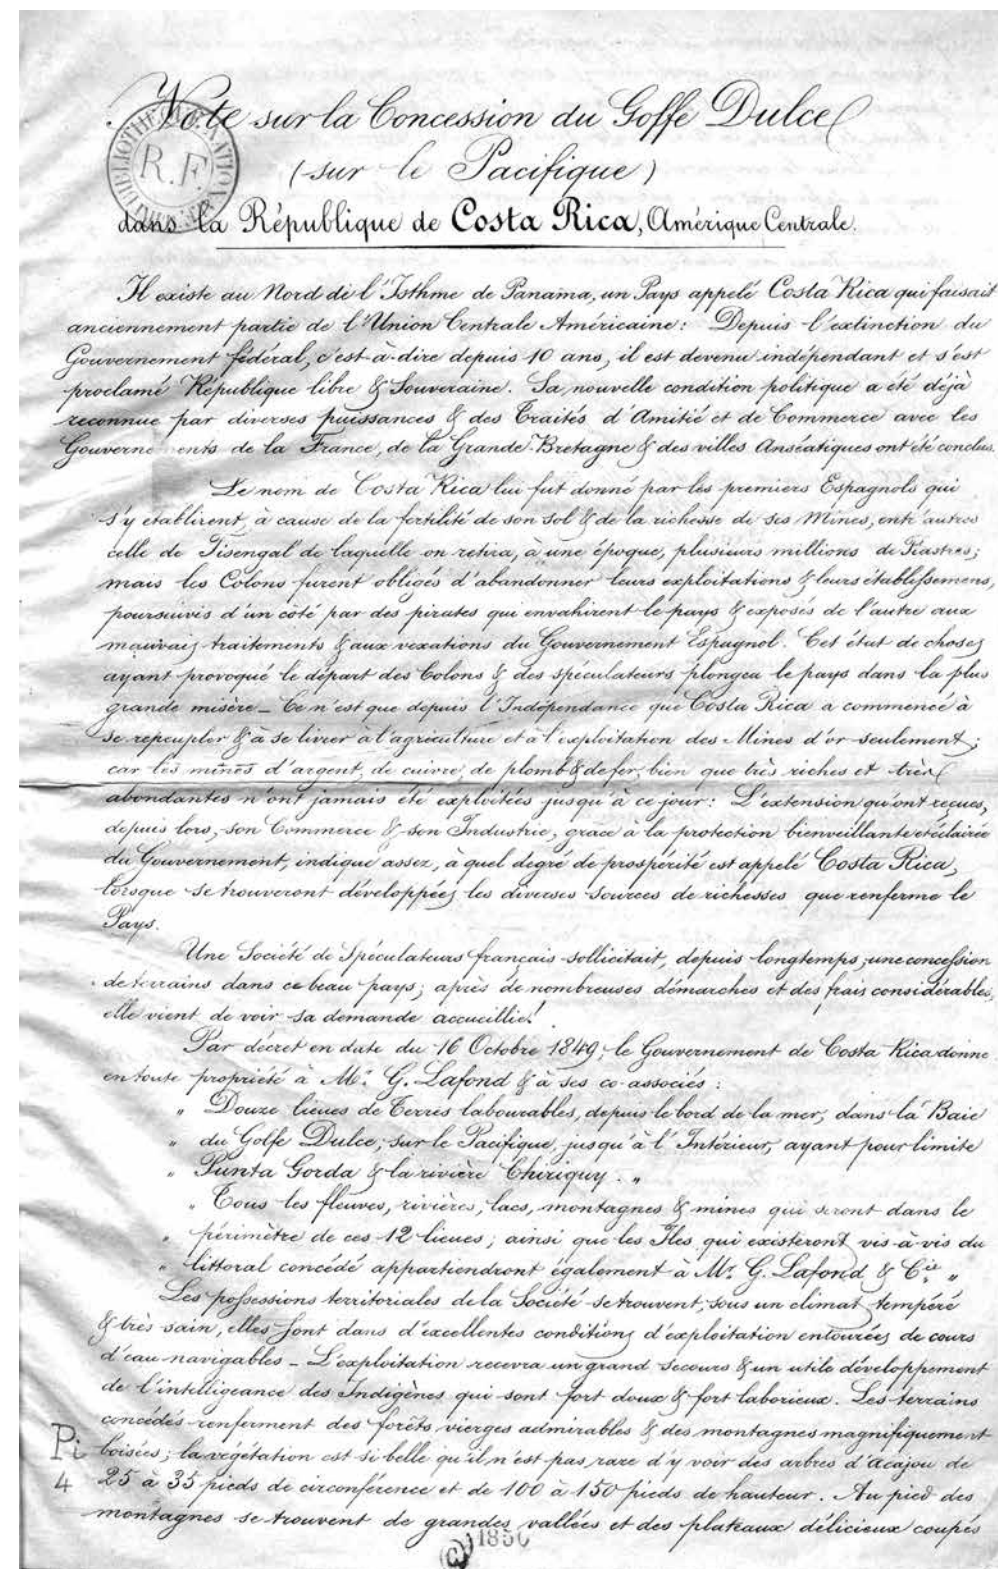 Note sur la Concession du Golfe Dulce
(sur le Pacifique)
dans la République de Costa Rica, Amérique Centrale.
BIBLIOTHÈQUE NATIONALE
R.F.
Il existe au Nord de l'Isthme de Panama, un Pays appelé Costa Rica qui faisait
anciennement partie de l'Union Centrale Américaine: Depuis l'extinction du
Gouvernement fédéral, c'est-à-dire depuis 10 ans, il est devenu indépendant et s'est
proclamé République libre & Souveraine. Sa nouvelle condition politique a été déjà
reconnue par diverses puissances & des Traités d'Amitié et de Commerce avec les
Gouverne ents de la France, de la Grande-Bretagne & des villes Anséatiques ont été conclus.
Le nom de Costa Rica lui fut donné par les premiers Espagnols qui
s'y etablirent, à cause de la fertilité de son sol & de la richesse de ses Mines, entr'autres
celle de Tisengal de laquelle on retira, à une époque, plusieurs millions de Piastres;
mais les Colons furent obligés d'abandonner leurs exploitations & leurs établissemens,
poursuivis d'un côté par des pirates qui envahirent le pays & exposés de l'autre aux
mauvais traitements & aux vexations du Gouvernement Espagnol. Cet état de choses
ayant provoqué le départ des Colons & des spéculateurs plongea le pays dans la plus
grande misère _ Ce n'est que depuis l'Indépendance que Costa Rica a commencé à
se repeupler & à se livrer à l'agriculture et à l'exploitation des Mines d'or seulement;
car les mines d'argent, de cuivre, de plomb & de fer, bien que très riches et très
abondantes n'ont jamais été exploitées jusqu'à ce jour: L'extension qu'ont reçues,
depuis lors, son Commerce & son Industrie, grâce à la protection bienveillante et éclairée
du Gouvernement, indique assez, à quel degré de prospérité est appelé Costa Rica,
lorsque se trouveront développées les diverses sources de richesses que renferme le
Pays.
Une Société de Spéculateurs français sollicitait, depuis longtemps, une concession
de terrains dans ce beau pays; après de nombreuses démarches et des frais considérables,
elle vient de voir sa demande accueillie!
Par décret en date du 16 Octobre 1849, le Gouvernement de Costa Rica donne
en toute propriété à Mr. G. Lafond & à ses co-associés:
" Douze lieues de Terres labourables, depuis le bord de la mer, dans la Baie
" du Golfe Dulce, sur le Pacifique, jusqu'à l'Intérieur, ayant pour limite
" Punta Gorda & la rivière Chiriquy. "
" Tous les fleuves, rivières, lacs, montagnes & mines qui seront dans le
" périmètre de ces 12 lieues; ainsi que les Iles qui existeront vis-à-vis du
" littoral concédé appartiendront également à Mr. G. Lafond & Cie. "
Les possessions territoriales de la Société se trouvent, sous un climat tempéré
& très sain, elles sont dans d'excellentes conditions d'exploitation entourées de cours
d'eau navigables _ L'exploitation recevra un grand secours & un utile développement
de l'intelligeance des Indigènes qui sont fort doux & fort laborieux. Les terrains
concédés renferment des forêts vierges admirables & des montagnes magnifiquement
boisées; la végétation est si belle qu'il n'est pas rare d'y voir des arbres d'Acajou de
25 à 35 pieds de circonférence et de 100 à 150 pieds de hauteur. Au pied des
montagnes se trouvent de grandes vallées et des plateaux délicieux coupés
Pi
4
(c) 1850